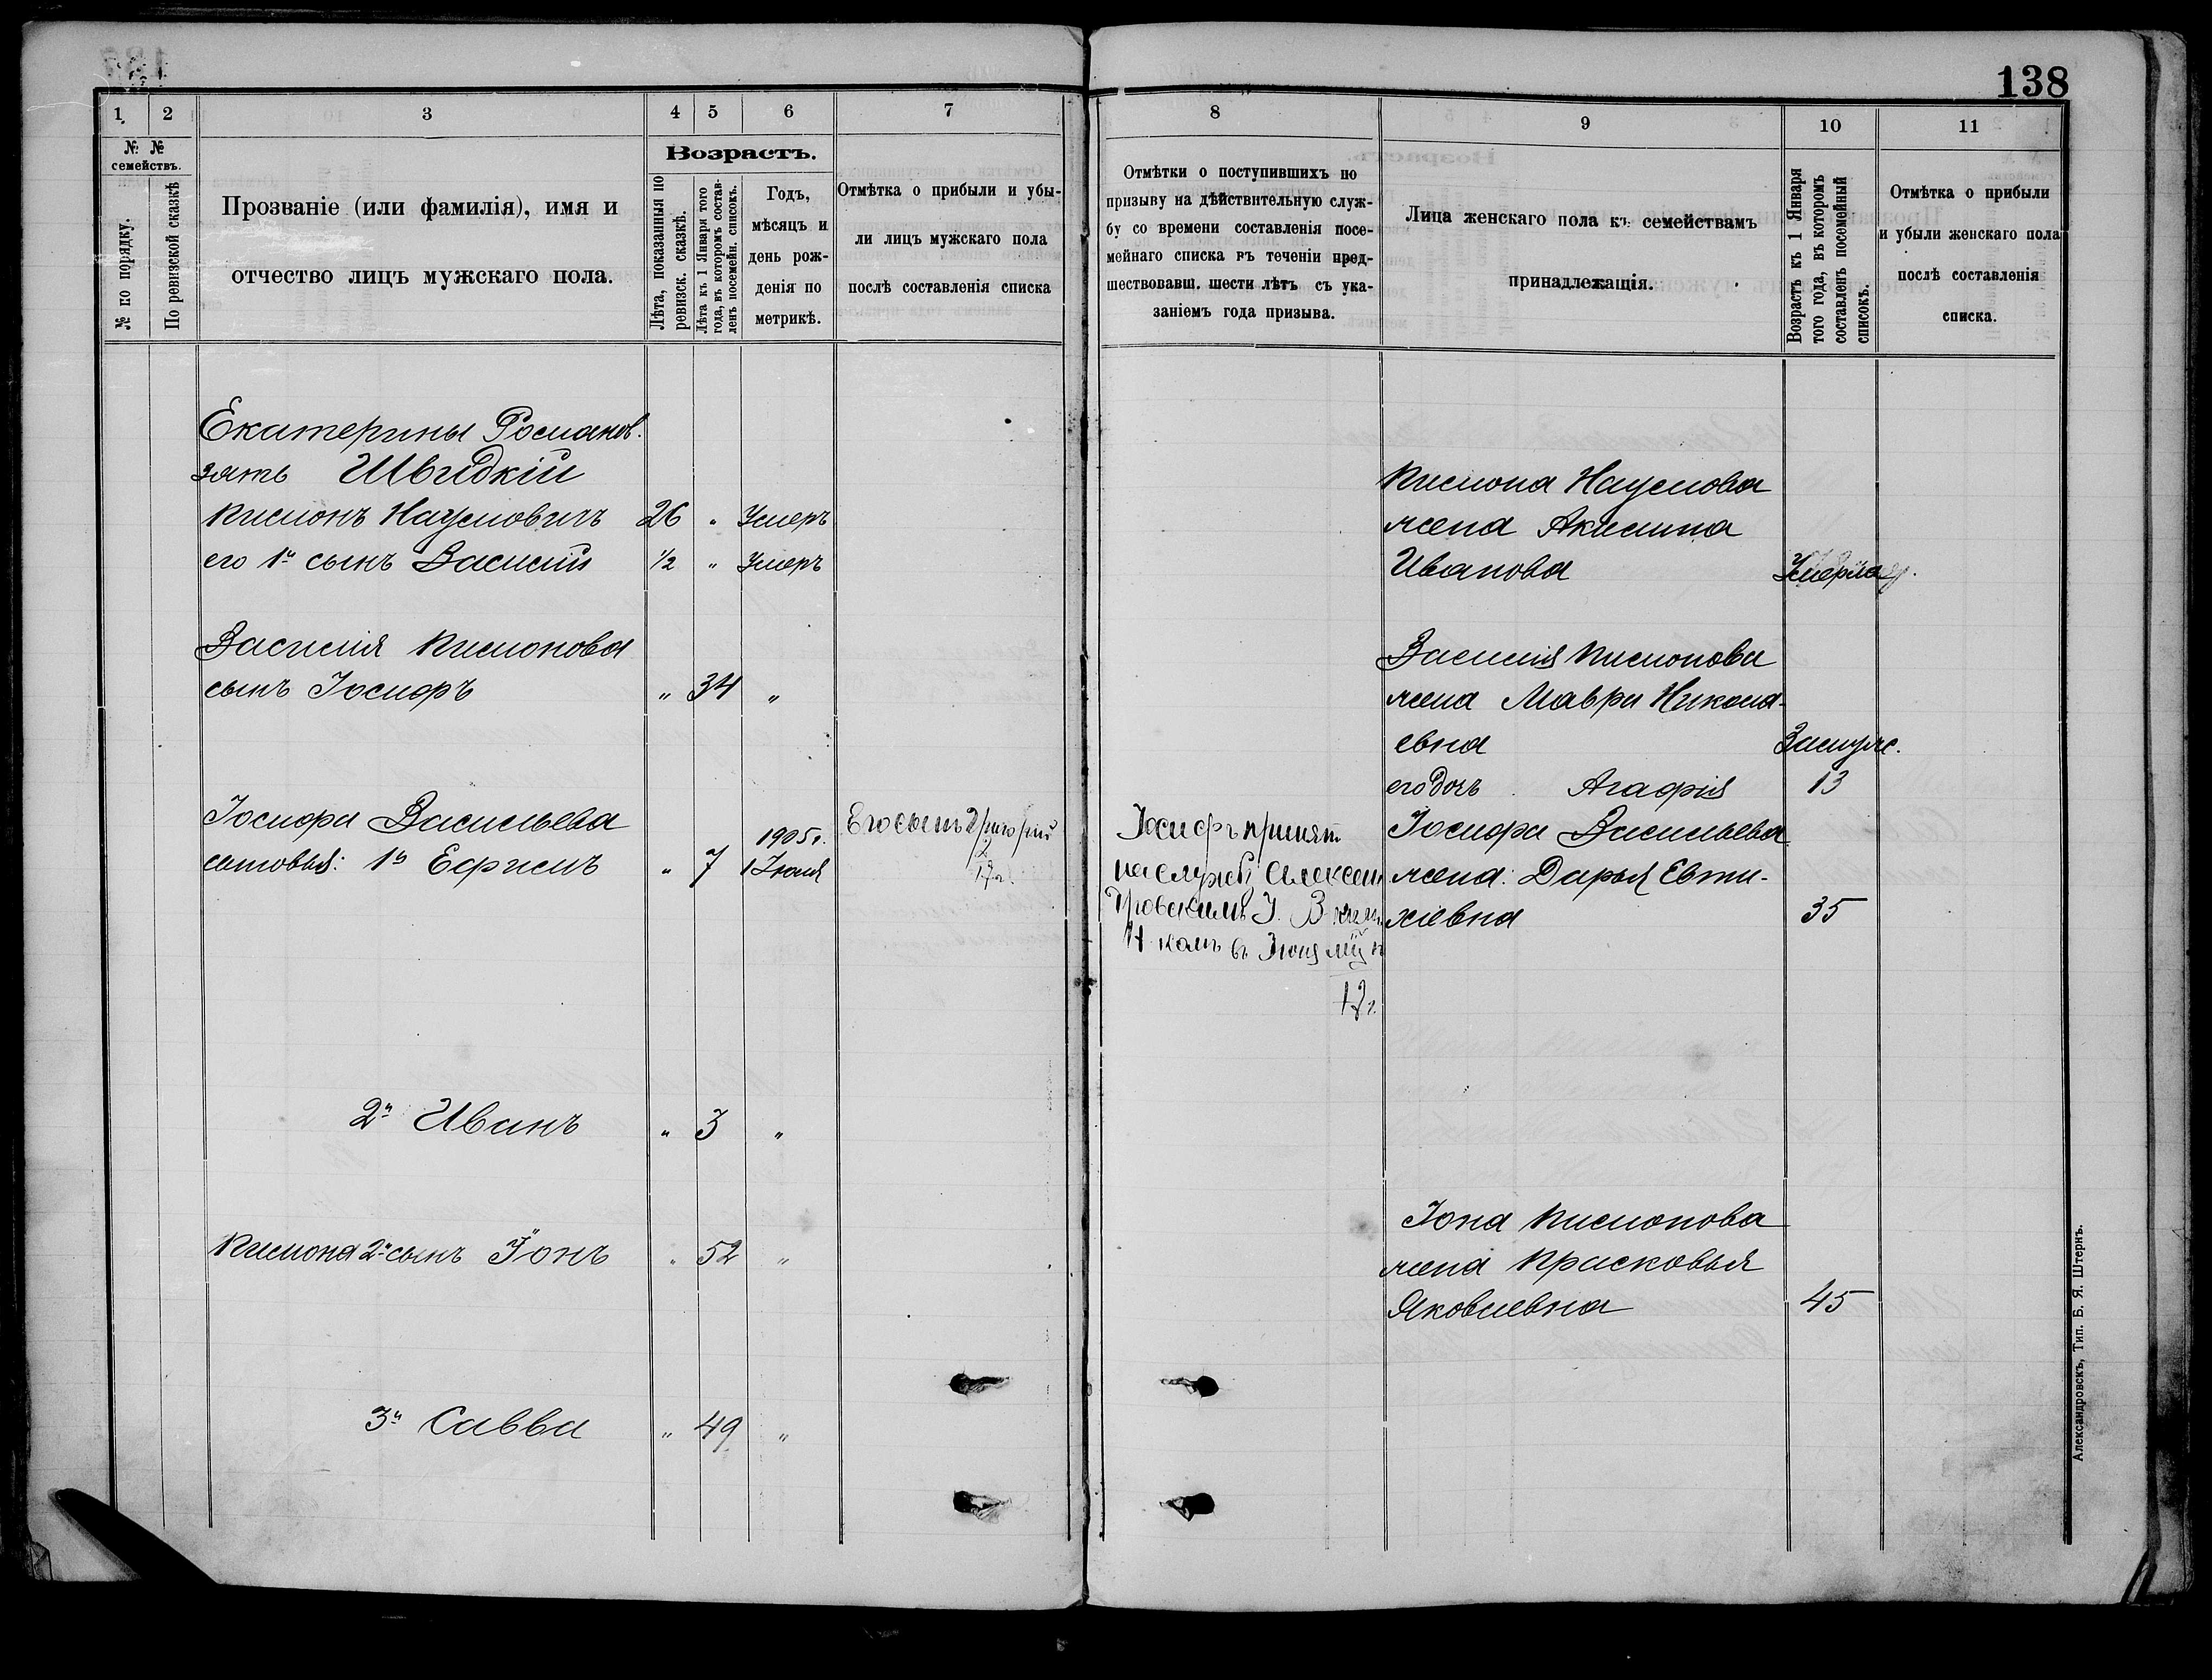 138
1
2
3
4
5
6
7
№ №
семействъ.
№ по порядку.
По ревизской сказкѣ
Прозваніе (или фамилія), имя и
отчество лицъ мужскаго пола.
Возрастъ.
Лѣта, показанныя по
ревизск. сказкѣ.
Лѣта къ 1 Января того
года, въ которомъ состав-
ленъ посемейн. списокъ.
Годъ,
мѣсяцъ и
день рож-
денія по
метрикѣ.
Отмѣтка о прибыли и убы-
ли лицъ мужскаго пола
послѣ составленія списка
Екатерины Романов.
зять Швидкій
Филимонъ Наумовичъ 26 „ Умеръ
его 1й сынъ Василій 1/2 „ Умеръ
Василія Филимонова
сынъ Іосифъ „ 34 „
Іосифа Васильева
сыновья: 1й Ефимъ „ 7 1905г. 1 Іюня
Его сынъ Григорій
2
17 г.
2й Иванъ „ 3 „
Филимона 2й сынъ Іонъ „ 52 „
3й Савва „ 49 „
8
9
10
11
Отмѣтки о поступившихъ по
призыву на дѣйствительную служ-
бу со времени составленія посе-
мейнаго списка въ теченіи пред-
шествовавш. шести лѣтъ съ ука-
заніемъ года призыва.
Лица женскаго пола къ семействамъ
принадлежащія.
Возрастъ къ 1 Января
того года, въ которомъ
составленъ посемейный
списокъ.
Отмѣтка о прибыли
и убыли женскаго пола
послѣ составленія
списка.
Наумова
жена Акилина
Иванова Умерла
Василія
жена Мавра Никола-
евна Замуж.
его дочь Агафія 13
Іосифъ принят
на службу Алексан
дровскимъ У. В.
въ Іюня
17 г.
Іосифа Васильева
жена: Дарья Евти-
хіевна 35
Іона Филимонова
жена Прасковья
Яковлевна 45
Александровскъ, Тип. Б. Я. Штернъ.